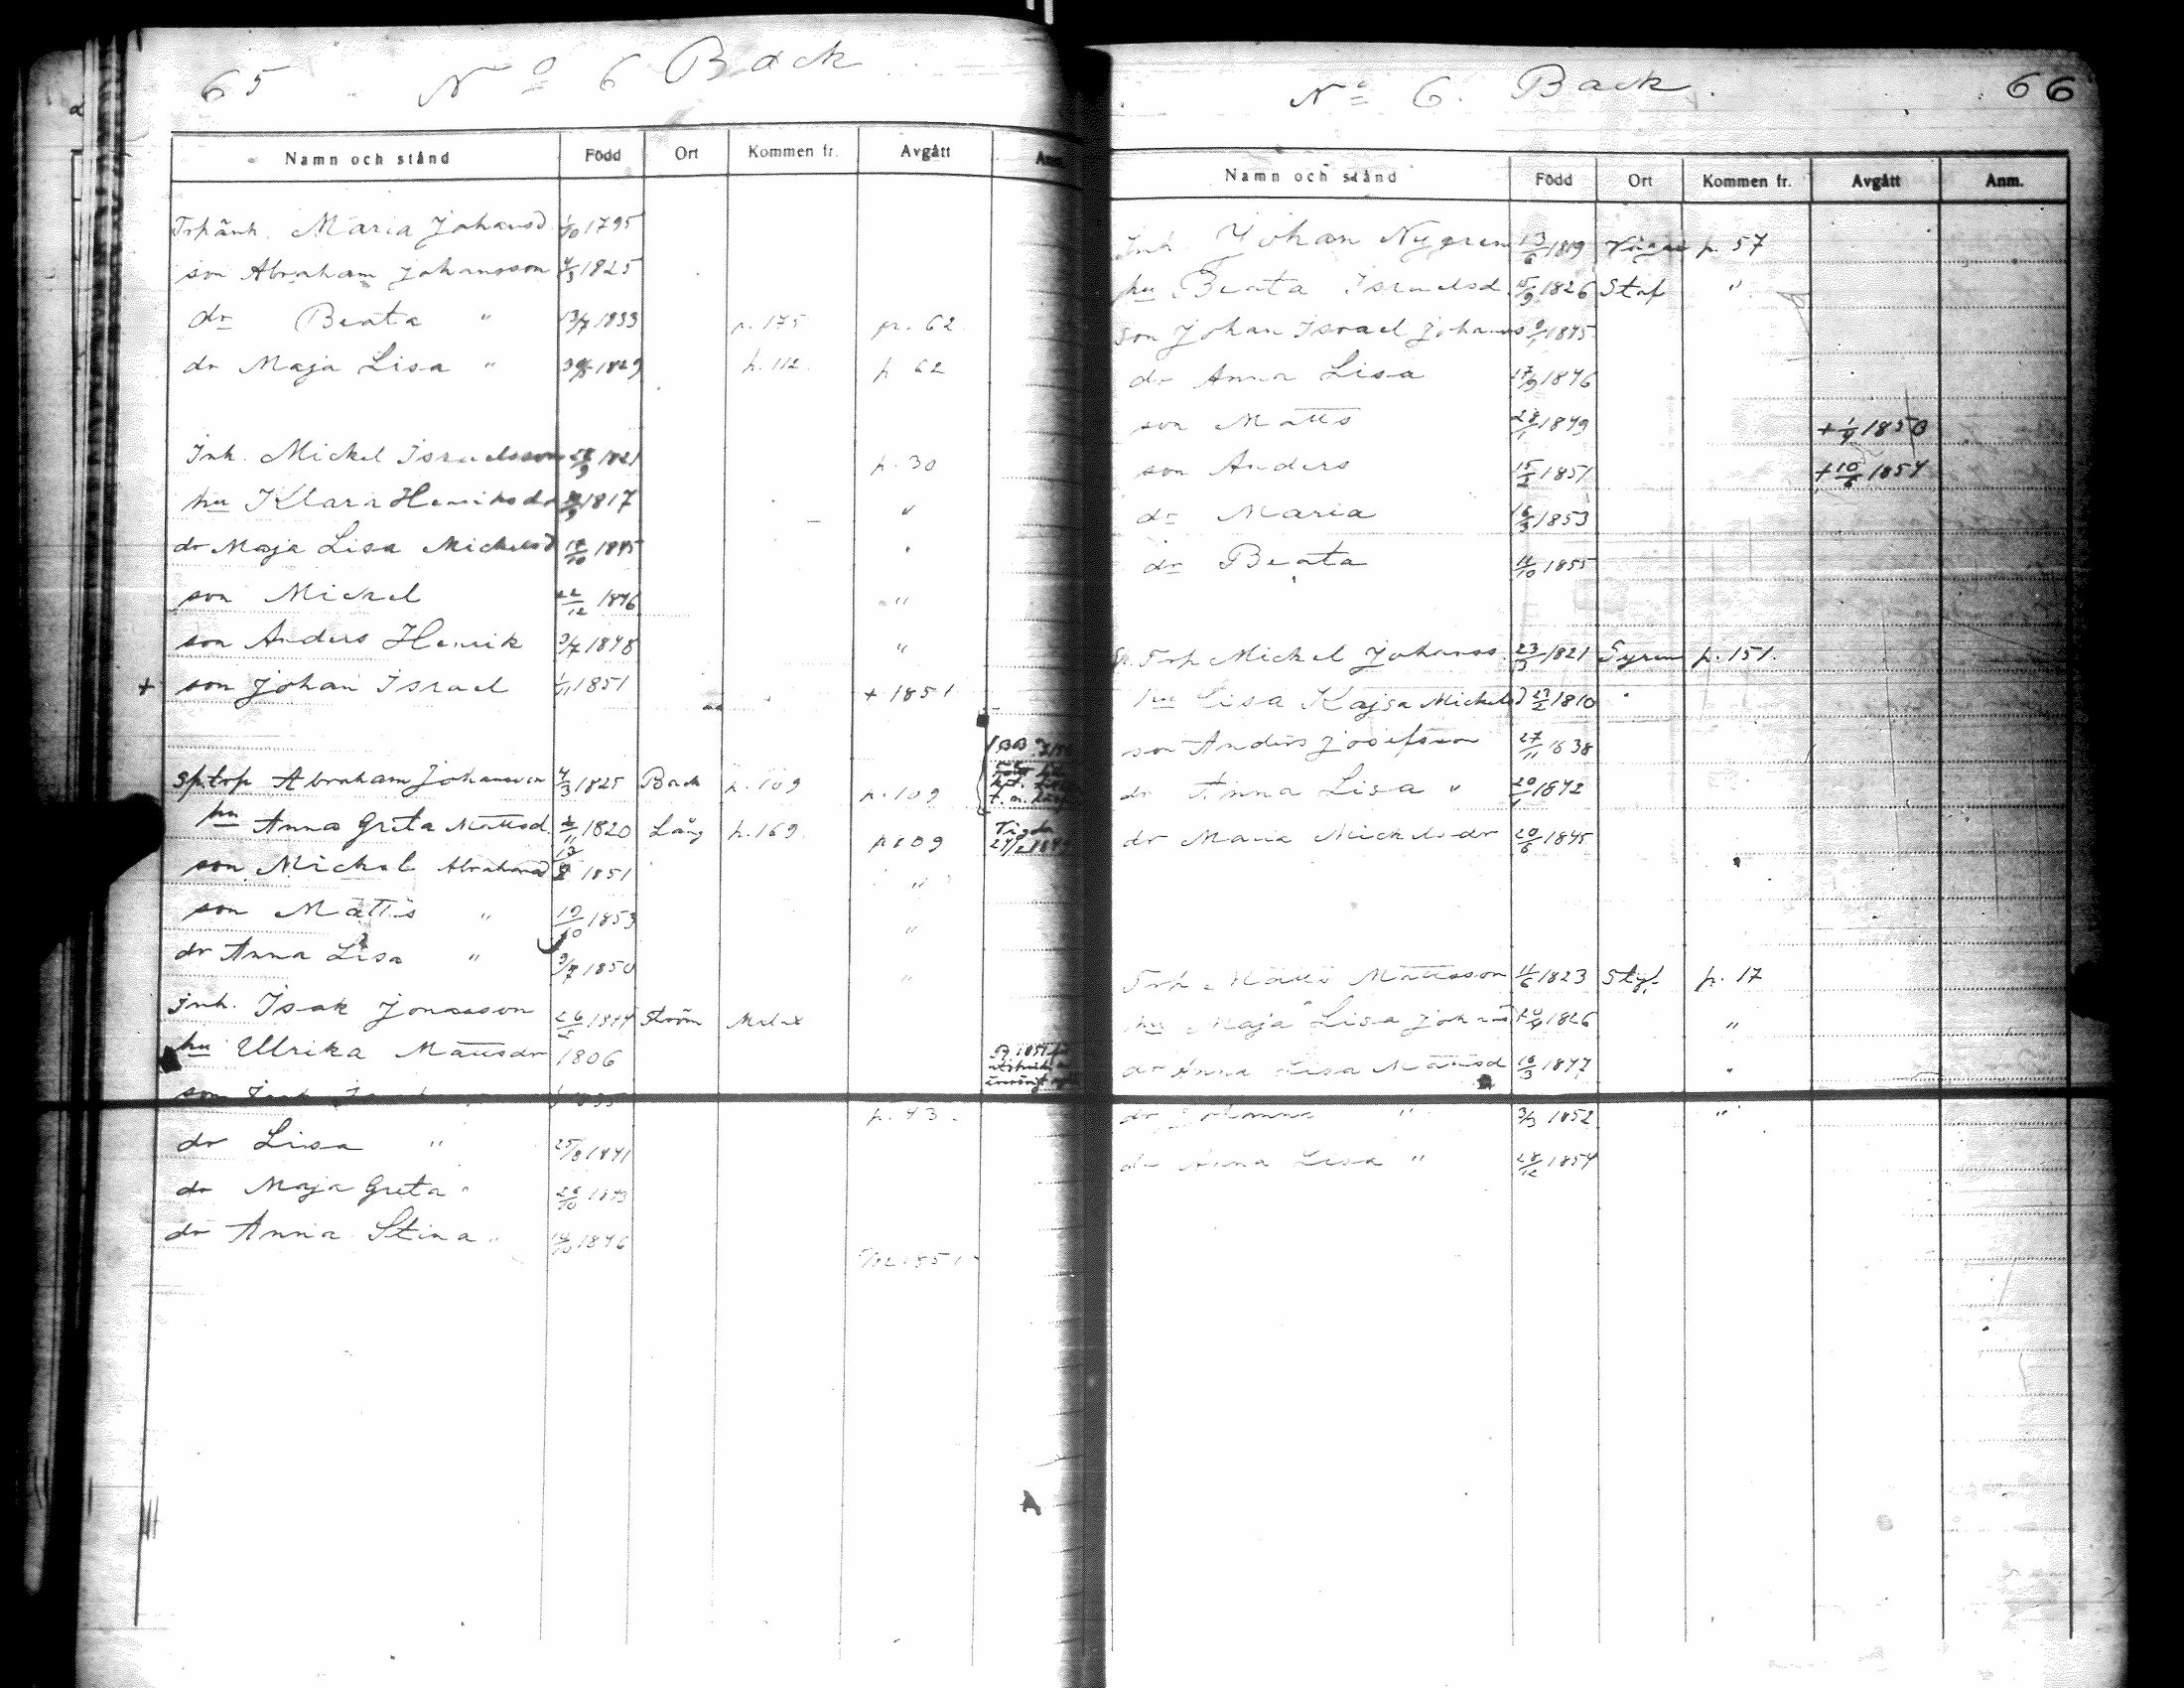 65 No 6 Back
Namn och stånd Född Ort Kommen fr. Avgått Anm.
Trpänk. Maria Johansd. 1/10 1795
son Abraham Johansson 4/3 1825
dr Beata " 13/7 1833 p. 175 p. 62
dr Maja Lisa " 1829 p. 112 p 62
Inh. Mickel Israelsson 1821 p. 30
hu Klara Henriksdr 1817 "
dr Maja Lisa Mickelsd 1845 "
son Mickel 22/12 1846 "
son Anders Henrik 3/7 1848 "
+ son Johan Israel 1/11 1851 + 1851
sp.trp Abraham Johansson 4/3 1825 Back p. 109 p. 109
hu Anna Greta Mattsd. 1820 Lång p. 169 p 109 Vigda
son Mickel Abrahamss 1851 "
son Matts " 10/10 1853 "
dr Anna Lisa " 9/7 1850 "
Inh. Isak Jonasson Ström Malax
hu Ulrika Mattsdr 1806
son p. 43.
dr Lisa " 25/8 1841
dr Maja Greta " 26/10 1843
dr Anna Stina " 1846
1851
No 6. Back. 66
Namn och stånd Född Ort Kommen fr. Avgått Anm.
Inh. Johan Nygren 13/6 1819 p. 57
hu Beata Israelsd. 15/9 1826 Staf "
son Johan Israel Johanss 1845
dr Anna Lisa 17/9 1846
son Matts 28/1 1849 + 1/9 1850
son Anders 15/2 1851 + 10/6 1854
dr Maria 16/3 1853
dr Beata 1855
Sp. Trp Mickel Johanss. 23/3 1821 p. 151.
hu Lisa Kajsa Mickelsd 23/2 1810 "
son Anders Josefsson 27/11 1838
dr Anna Lisa " 20/1 1842
dr Maria Mickelsdr 20/6 1845
Trp Matts Mattsson 1823 p. 17
hu Maja Lisa Johansd 1826 "
dr Anna Lisa Mattsd 18/3 1847 "
dr Johanna " 3/3 1852 "
dr Anna Lisa " 28/12 1854